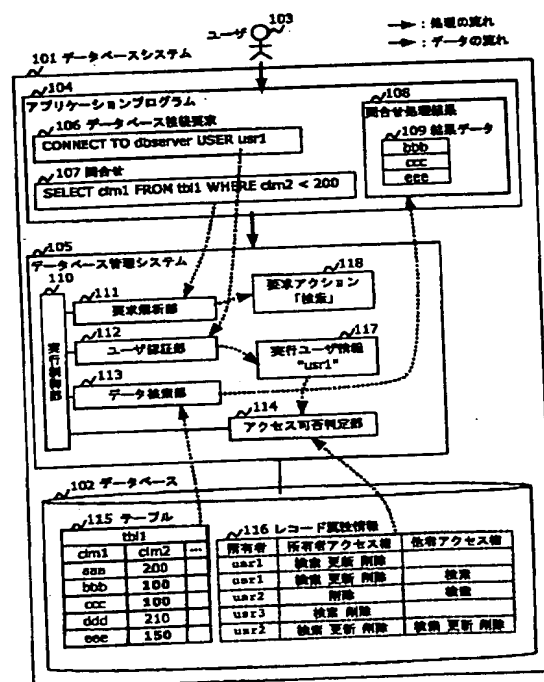 103
ユーザ
→ : 処理の流れ
→ : データの流れ
101 データベースシステム
104
アプリケーションプログラム
106 データベース接続要求
CONNECT TO dbserver USER usr1
107 問合せ
SELECT clm1 FROM tbl1 WHERE clm2 < 200
108
問合せ処理結果
109 結果データ
bbb
ccc
eee
105
データベース管理システム
110
実行制御部
111
要求解析部
112
ユーザ認証部
113
データ検索部
118
要求アクション
「検索」
117
実行ユーザ情報
"usr1"
114
アクセス可否判定部
102 データベース
115 テーブル
tbl1
clm1 clm2 …
aaa 200
bbb 100
ccc 100
ddd 210
eee 150
116 レコード属性情報
所有者 所有者アクセス権 他者アクセス権
usr1 検索 更新 削除
usr1 検索 更新 削除 検索
usr2 削除 検索
usr3 検索 削除
usr2 検索 更新 削除 検索 更新 削除